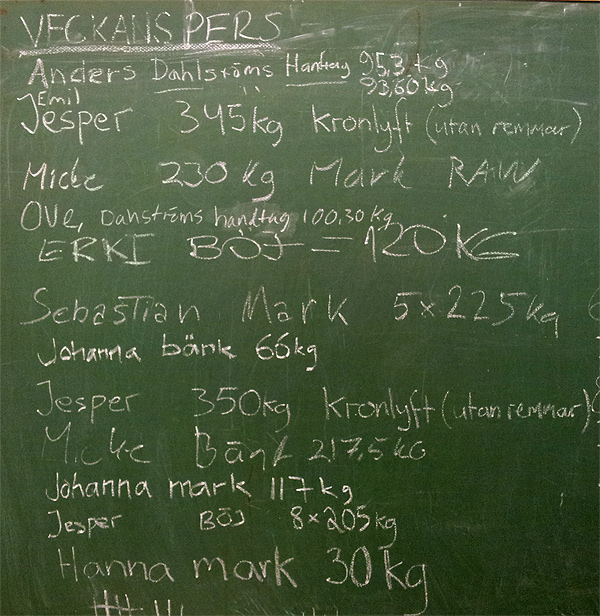 VECKANS PERS
Anders Dahlströms Handtag 95,3 kg
Emil " 93,60 kg
Jesper 345kg Kronlyft (utan remmar)
Micke 230 kg Mark RAW
OVE, Dahströms handtag 100,30 kg
ERKI BÖJ = 120KG
Sebastian Mark 5x225kg
Johanna bänk 66kg
Jesper 350kg Kronlyft (utan remmar)
Micke Bänk 217,5 kg
Johanna mark 117 kg
Jesper BÖJ 8x205kg
Hanna mark 30 kg